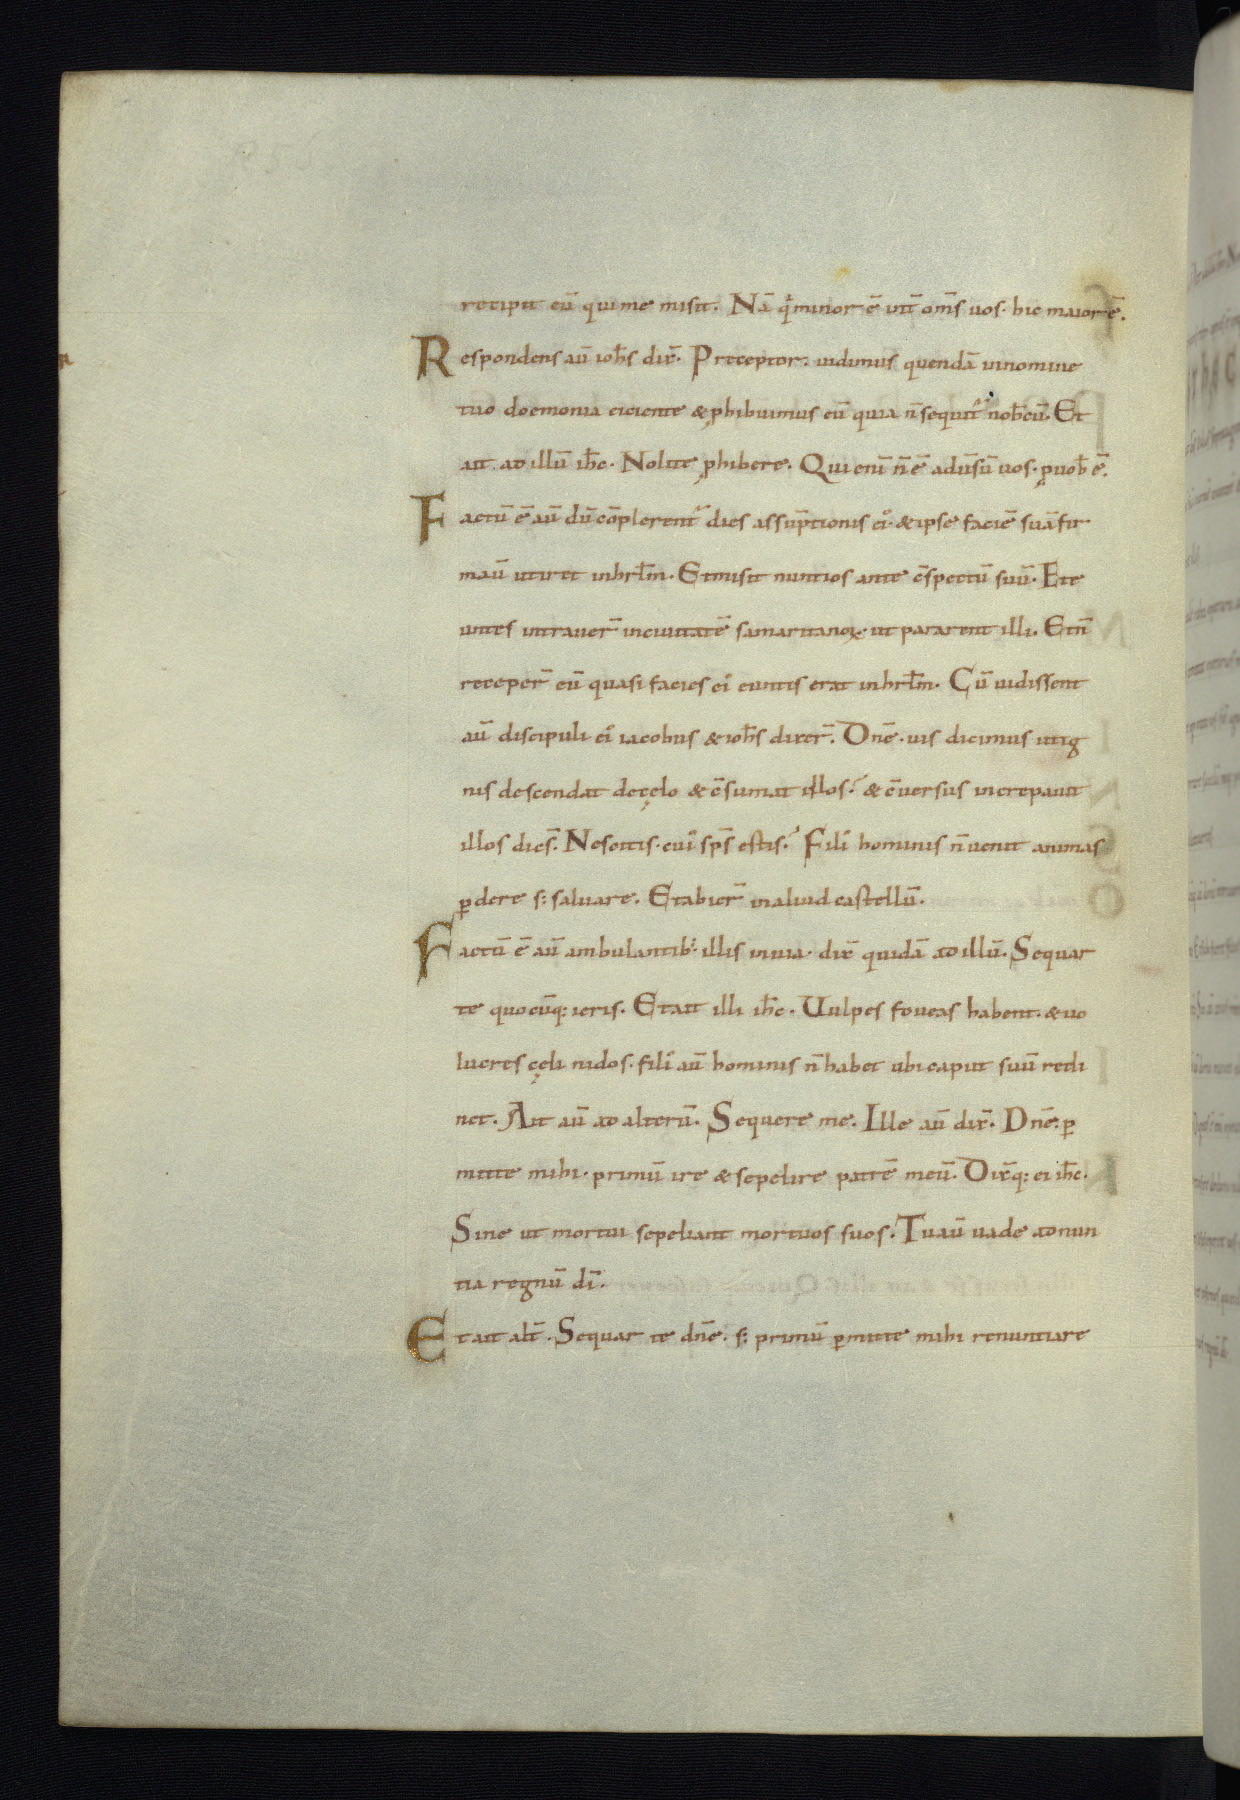 recipit eū qui me misit. Nā q minor ē int̄ om̄s uos. hic maior ē.
Respondens aū ioh̄s dix̄. Preceptor. uidimus quendā in nomine
tuo doemonia eiciente & ꝓhibuimus eū quia n̄ sequit̄ nob̄cū. Et
ait ad illū ih̄c. Nolite ꝓhibere. Qui enī n̄ ē aduersū uos. ꝓ uob̄ ē.
Factū ē aū dū cōplerent̄ dies assūptionis ei᾿. & ipse faciē suā fir
mau̅ ut iret in hrl̄m. Et misit nuntios ante c̄spectū suū. Ete
untes intrauer̄ in ciuitatē samaritanoꝝ. ut pararent illi. Et n̄
receper̄ eū quasi facies ei᾿ euntis erat in hrl̄m. Cū uidissent
aū discipuli ei᾿ iacobus & ioh̄s dixer̄. Dn̄e. uis dicimus ut ig
nis descendat de cęlo & c̄sumat illos? & c̄uersus increpauit
illos dic̄s. Nescitis. cui᾿ sp̄s estis? Fili᾿ hominis n̄ uenit animas
ꝑdere s; saluare. Et abier̄ in aliud castellū.
Factū ē aū ambulantib; illis in uia. dix̄ quidā ad illū. Sequar
te quocūq; ieris. Et ait illi ih̄c. Uulpes foueas habent. & uo
lucres cęli nidos. fili᾿ aū hominis n̄ habet ubi caput suū recli
net. Ait aū ad alterū. Sequere me. Ille aū dix̄. Dn̄e. ꝑ
mitte mihi. primū ire & sepelire patrē meū. Dix̄q; ei ih̄c.
Sine ut mortui sepeliant mortuos suos. Tu aū uade adnun
tia regnū dī.
Et ait alt̄. Sequar te dn̄e. s; primū ꝑmitte mihi renuntiare